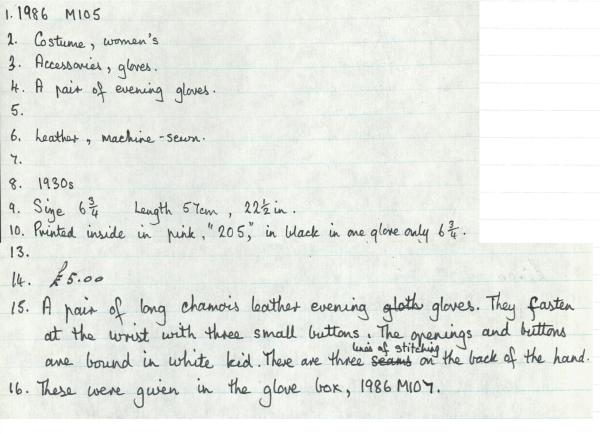 1. 1986 M105
2. Costume, women's
3. Accessories, gloves.
4. A pair of evening gloves.
5.
6. Leather, machine-sewn.
7.
8. 1930s
9. Size 6 3/4 Length 57cm, 22 1/2 in.
10. Printed inside in pink, "205," in black in one glove only 6 3/4.
13.
14. £5.00
15. A pair of long chamois leather evening gloth gloves. They fasten
at the wrist with three small buttons. The openings and buttons
are bound in white kid. There are three seams lines of stitching on the back of the hand.
16. These were given in the glove box, 1986 M107.